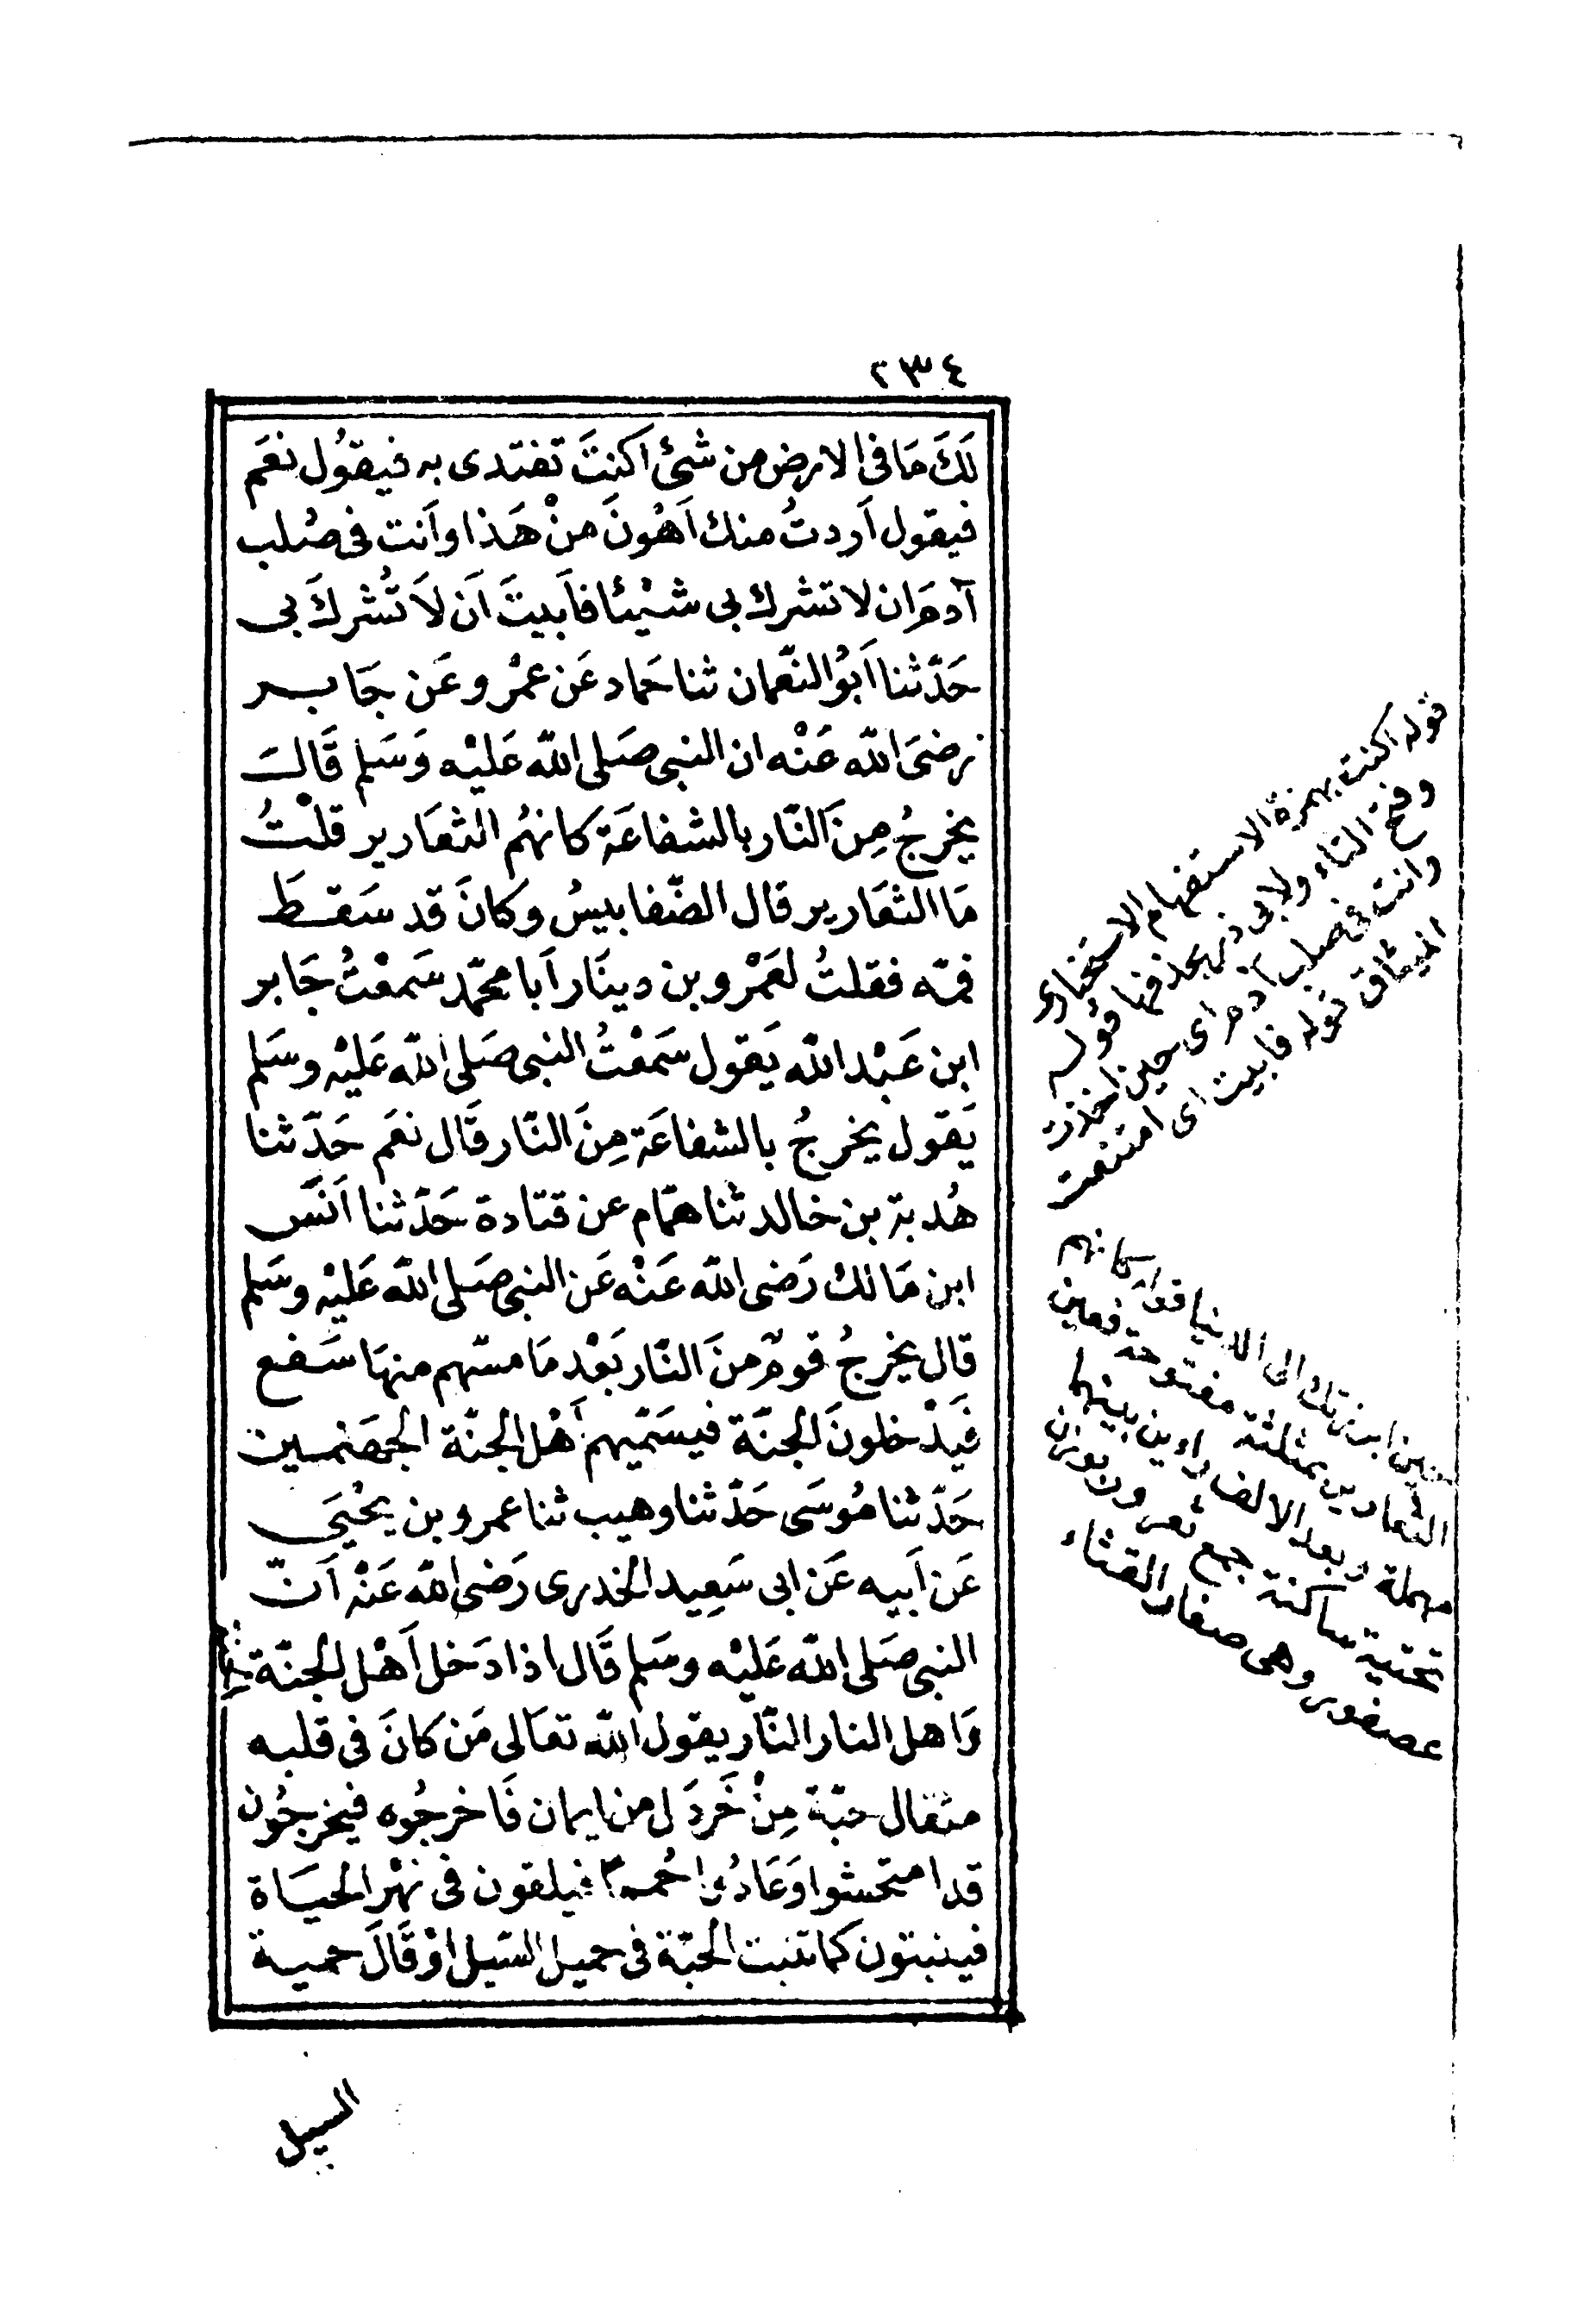 ٢٣٤
لَكَ مَا فى الارض من شئ اَكنتَ تفتدى به فيقوُل نعَم
فيقول اَردتُ منك اَهْونَ منْ هَذا واَنت فى صُلب
آدم اَن لا تشرك بى شيْئا فاَبيتَ اَن لاَ تُشركَ بى
حَدّثنا اَبوُ النّعمان ثنا حَماد عَن عمْرو عَن جَابر
رضىَ الله عَنْه ان النبى صَلى الله عَليْه وَسَلم قَالَ
يخرجُ مِنَ النّار بالشفاعَة كانهُم الثعَارير قلْتُ
مَا الثعَارير قال الضّغابيسُ وكانَ قد سَقطَ
فمّه فقلتُ لعَمْرو بن دينَار اَبا محمّد سَمعْتُ جَابر
ابن عَبْد الله يَقول سَمعْتُ النبى صَلى الله عَليْه وسَلم
يَقول يخرجُ بالشفاعَة مِنَ النّار قَال نعَم حَدّثنا
هُدبة بن خالد ثنا همّام عن قتادة حَدّثنا انَس
ابن مَالك رَضى الله عَنْه عَن النبى صَلى الله عَليْه وسَلم
قال يخرجُ قومٌ منَ النّار بَعْد مَا مسّهم منهَا سَفع
فَيدْخلونَ الجنّة فيسَمّيهم اَهْل الجنّة الجهَنميين
حَدّثنا مُوسَى حَدّثنا وهيب ثنا عمرو بن يحْيَى
عَن اَبيه عَن ابى سَعِيد الخدرى رَضى الله عَنْه اَنّ
النبى صَلى الله عَليْه وسَلم قَال اذا دَخل اَهْل الجنّة
وَاهل النار النّار يقول الله تعَالى مَن كانَ فى قلبه
مثقال حبّة مِنْ خَردَل من ايمان فَاخرجُوه فيخرجُون
قد امتحشوا وَعَادُوا حُمما فيلقون فى نهْر الحيَاة
فينبتون كما تنبت الحبّة فى حميل السّيل اوْ قَالَ حمية
السيل
قوله اكنت بهمزة الاستفهام الاستخبارى
وفتح التاء ولابى ذر بحذفها قوله
وانت فى صلب آدم اى حين اخذت
الميثاق قوله فابيت اى امتنعت
حين ابرزتك الى الدنيا قوله كانهم
الثعارير بمثلثة مفتوحة فعين
مهملة وبعد الالف راءين بينهما
تحتية ساكنة جمع ثعرور بوزن
عصفور وهى صغار القثاء